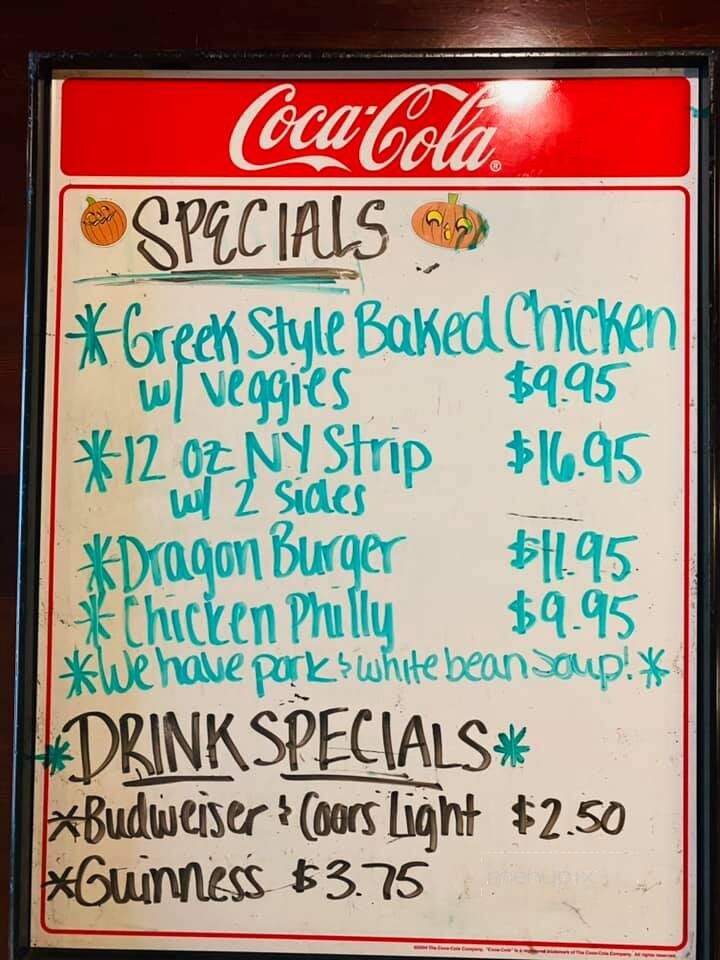 Coca-Cola®
SPECIALS
*Greek Style Baked Chicken
w/ veggies $9.95
*12 oz NY Strip $16.95
w/ 2 sides
*Dragon Burger $11.95
*Chicken Philly $9.95
*We have pork & white bean soup!*
*DRINK SPECIALS*
*Budweiser & Coors Light $2.50
*Guinness $3.75